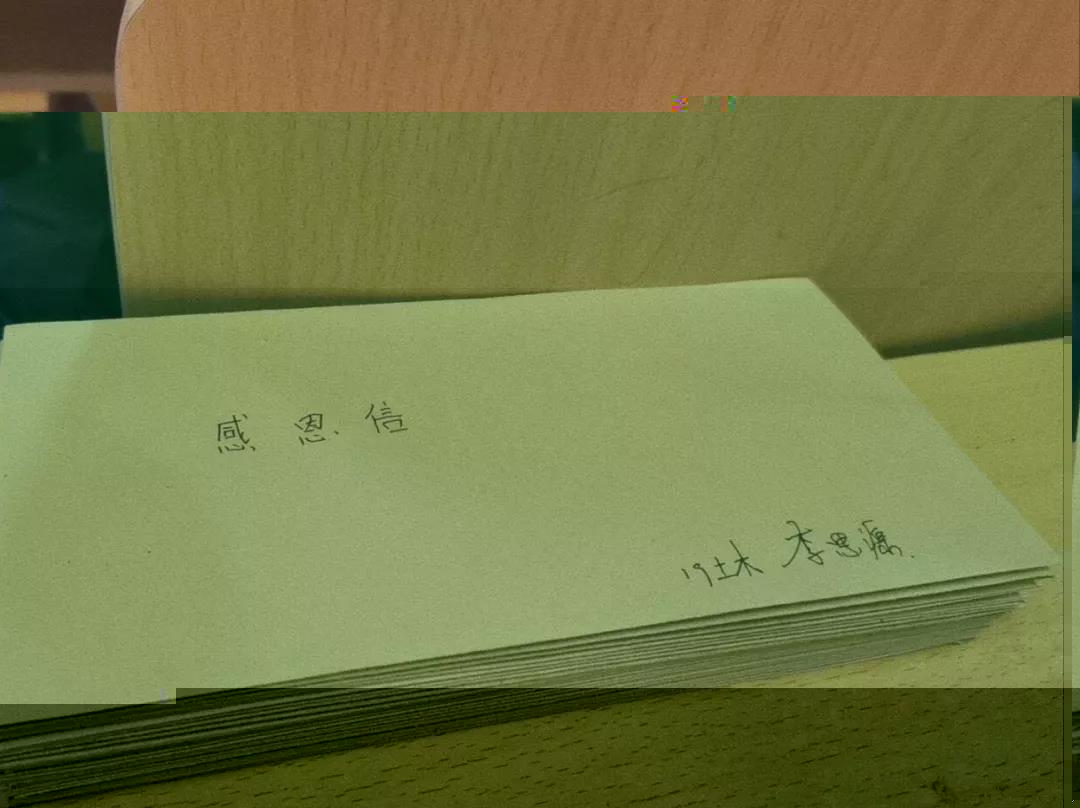 感恩信
19土木 李思源